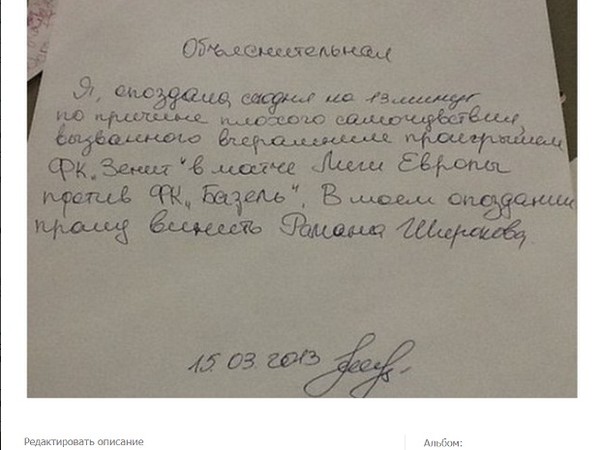 Объяснительная
Я, опоздала сегодня на 13 минут
по причине плохого самочувствия,
вызванного вчерашним проигрышем
ФК „Зенит“ в матче Лиги Европы
против ФК „Базель“. В моем опоздании
прошу винить Романа Широкова.
15.03.2013
Редактировать описание
Альбом: